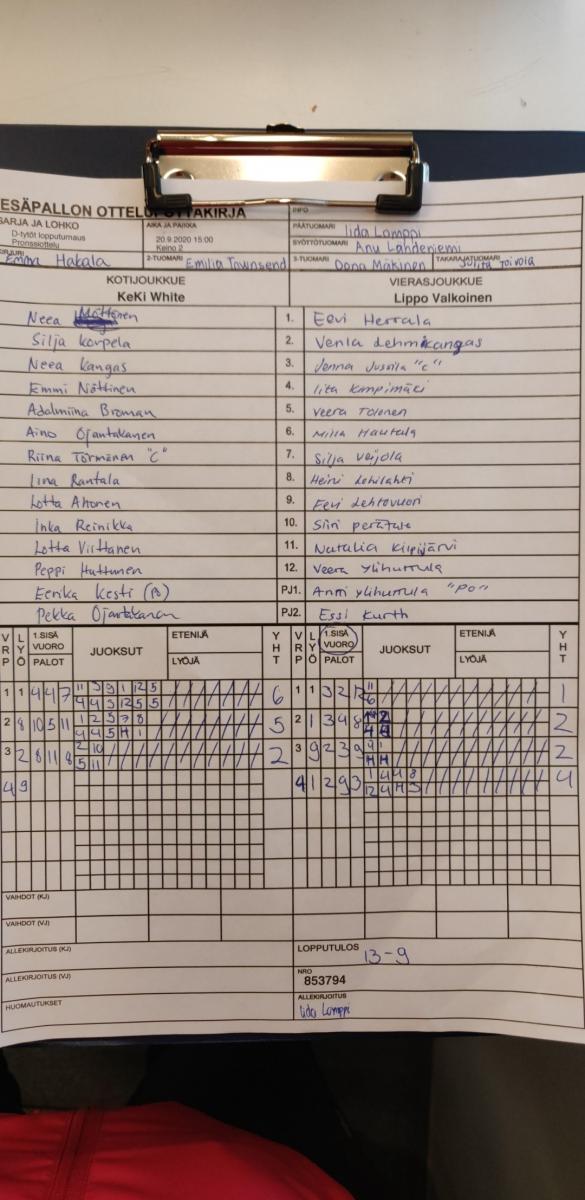 ESÄPALLON OTTELUPÖYTÄKIRJA
SARJA JA LOHKO
D-tytöt lopputurnaus
Pronssiottelu
AIKA JA PAIKKA
20.9.2020 15:00
Keino 2
INFO
PÄÄTUOMARI Iida Lamppi
SYÖTTÖTUOMARI Anu Lahdeniemi
KIRJURI Emma Hakala
2-TUOMARI Emilia Townsend
3-TUOMARI Oona Mäkinen
TAKARAJATUOMARI Julita Toivola
KOTIJOUKKUE
KeKi White
VIERASJOUKKUE
Lippo Valkoinen
Neea Möttönen 1. Eevi Herrala
Silja Korpela 2. Venla Lehmikangas
Neea Kangas 3. Jenna Jussila "c"
Emmi Nöttinen 4. Iita Kimpimäki
Adalmiina Broman 5. Veera Tolonen
Aino Ojantakanen 6. Milla Hautala
Riina Törmänen "C" 7. Silja Veijola
Iina Rantala 8. Heini Lohilahti
Lotta Ahonen 9. Eevi Lehtovuori
Inka Reinikka 10. Siiri
Lotta Virttanen 11. Natalia Kilpijärvi
Peppi Huttunen 12. Veera Ylihurula
Eerika Kesti (Po) PJ1. Anni Ylihurula "PO"
Pekka Ojantakanen PJ2. Essi Kurth
VRP LYÖ 1.SISÄ VUORO PALOT JUOKSUT ETENIJÄ LYÖJÄ YHT VRP LYÖ 1.SISÄ VUORO PALOT JUOKSUT ETENIJÄ LYÖJÄ YHT
1 1 4 4 7 11 3 9 1 12 5 6 1 1 3 2 12 11 1
4 4 3 12 5 5 6
2 8 10 5 11 1 2 3 7 8 5 2 1 3 4 8 2
4 4 5 H 1
3 2 8 11 8 2 10 2 3 9 2 3 9 9 1 2
5 11 H H
4 9 4 1 2 9 3 1 4 4 8 4
12 4 H 3
VAIHDOT (KJ)
VAIHDOT (VJ)
ALLEKIRJOITUS (KJ)
LOPPUTULOS 13-9
ALLEKIRJOITUS (VJ)
NRO
853794
HUOMAUTUKSET
ALLEKIRJOITUS
Iida Lamppi